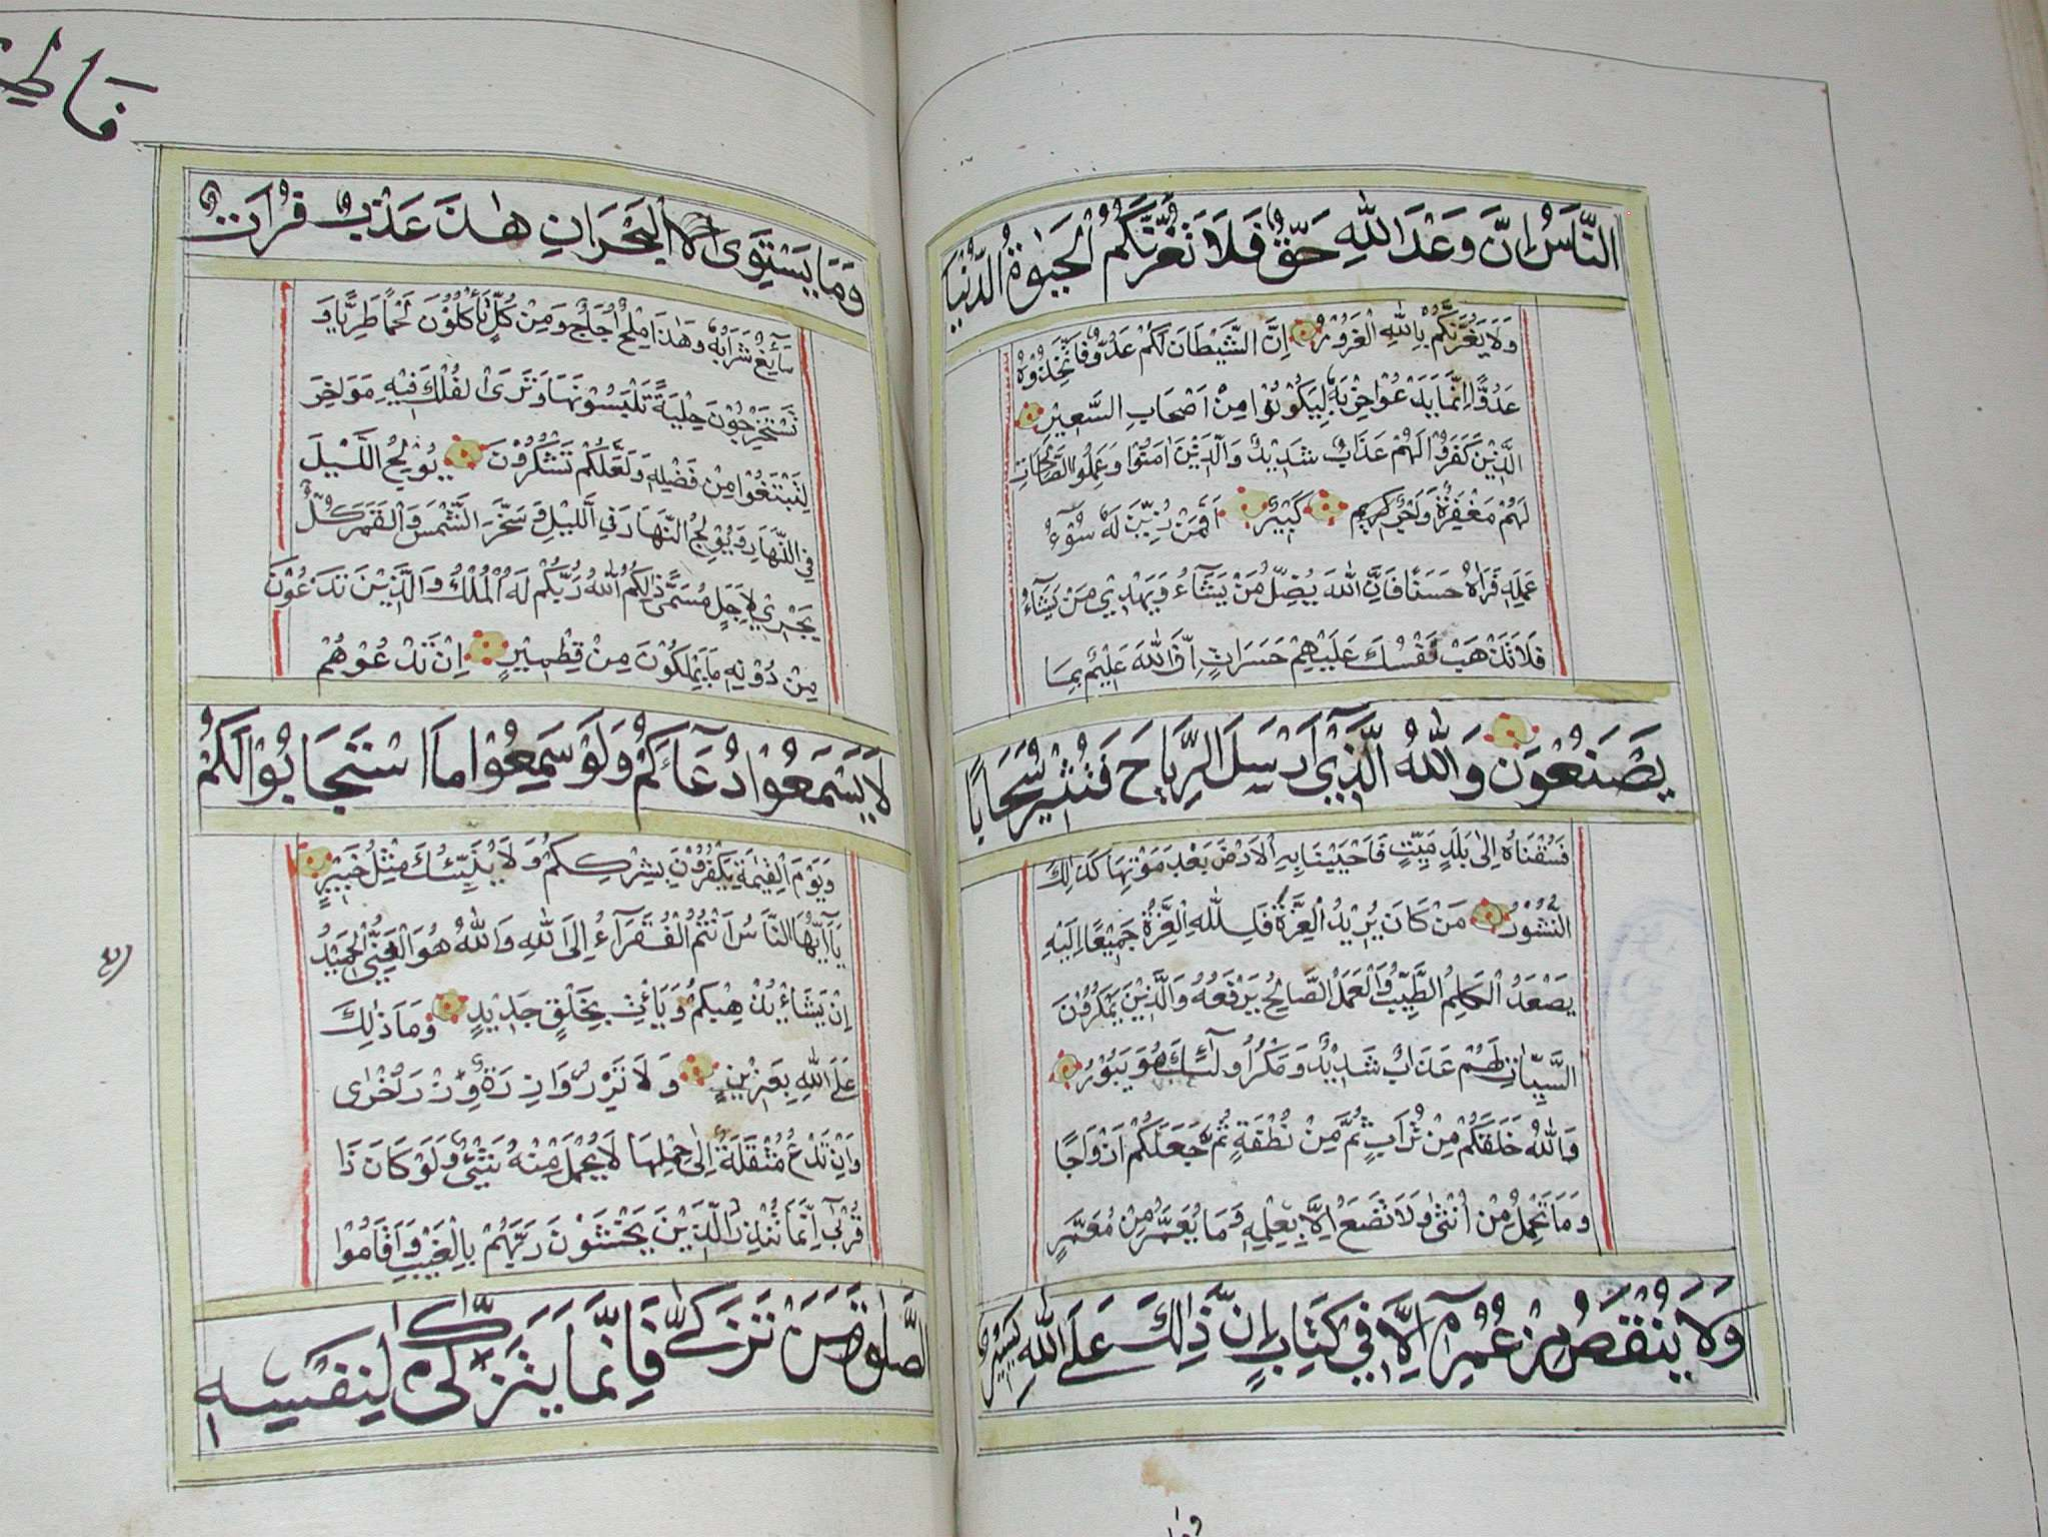 النَّاسُ إِنَّ وَعْدَ اللَّهِ حَقٌّ فَلَا تَغُرَّنَّكُمُ الْحَيٰوةُ الدُّنْيَا
وَلَا يَغُرَّنَّكُمْ بِاللَّهِ الْغَرُورُ إِنَّ الشَّيْطَانَ لَكُمْ عَدُوٌّ فَاتَّخِذُوهُ
عَدُوًّا إِنَّمَا يَدْعُوا حِزْبَهُ لِيَكُونُوا مِنْ أَصْحَابِ السَّعِيرِ
الَّذِينَ كَفَرُوا لَهُمْ عَذَابٌ شَدِيدٌ وَالَّذِينَ اٰمَنُوا وَعَمِلُوا الصَّالِحَاتِ
لَهُمْ مَغْفِرَةٌ وَأَجْرٌ كَرِيمٌ كَبِيرٌ أَفَمَنْ زُيِّنَ لَهُ سُوْءُ
عَمَلِهِ فَرَاٰهُ حَسَنًا فَإِنَّ اللَّهَ يُضِلُّ مَنْ يَشَآءُ وَيَهْدِي مَنْ يَشَآءُ
فَلَا تَذْهَبْ نَفْسُكَ عَلَيْهِمْ حَسَرَاتٍ إِنَّ اللَّهَ عَلِيمٌ بِمَا
يَصْنَعُونَ وَاللَّهُ الَّذِي أَرْسَلَ الرِّيَاحَ فَتُثِيرُ سَحَابًا
فَسُقْنَاهُ إِلَى بَلَدٍ مَيِّتٍ فَأَحْيَيْنَا بِهِ الْأَرْضَ بَعْدَ مَوْتِهَا كَذٰلِكَ
النُّشُورُ مَنْ كَانَ يُرِيدُ الْعِزَّةَ فَلِلَّهِ الْعِزَّةُ جَمِيعًا إِلَيْهِ
يَصْعَدُ الْكَلِمُ الطَّيِّبُ وَالْعَمَلُ الصَّالِحُ يَرْفَعُهُ وَالَّذِينَ يَمْكُرُونَ
السَّيِّئَاتِ لَهُمْ عَذَابٌ شَدِيدٌ وَمَكْرُ أُولٰٓئِكَ هُوَ يَبُورُ
وَاللَّهُ خَلَقَكُمْ مِنْ تُرَابٍ ثُمَّ مِنْ نُطْفَةٍ ثُمَّ جَعَلَكُمْ أَزْوَاجًا
وَمَا تَحْمِلُ مِنْ أُنْثٰى وَلَا تَضَعُ إِلَّا بِعِلْمِهِ وَمَا يُعَمَّرُ مِنْ مُعَمَّرٍ
وَلَا يُنْقَصُ مِنْ عُمُرِهِ إِلَّا فِي كِتَابٍ إِنَّ ذٰلِكَ عَلَى اللَّهِ يَسِيرٌ
وَمَا يَسْتَوِى الْبَحْرَانِ هٰذَا عَذْبٌ فُرَاتٌ
سَآئِغٌ شَرَابُهُ وَهٰذَا مِلْحٌ أُجَاجٌ وَمِنْ كُلٍّ تَأْكُلُونَ لَحْمًا طَرِيًّا وَ
تَسْتَخْرِجُونَ حِلْيَةً تَلْبَسُونَهَا وَتَرَى الْفُلْكَ فِيهِ مَوَاخِرَ
لِتَبْتَغُوا مِنْ فَضْلِهِ وَلَعَلَّكُمْ تَشْكُرُونَ يُولِجُ اللَّيْلَ
فِي النَّهَارِ وَيُولِجُ النَّهَارَ فِي اللَّيْلِ وَسَخَّرَ الشَّمْسَ وَالْقَمَرَ كُلٌّ
يَجْرِي لِأَجَلٍ مُسَمًّى ذٰلِكُمُ اللَّهُ رَبُّكُمْ لَهُ الْمُلْكُ وَالَّذِينَ تَدْعُونَ
مِنْ دُونِهِ مَا يَمْلِكُونَ مِنْ قِطْمِيرٍ إِنْ تَدْعُوهُمْ
لَا يَسْمَعُوا دُعَآءَكُمْ وَلَوْ سَمِعُوا مَا اسْتَجَابُوا لَكُمْ
وَيَوْمَ الْقِيٰمَةِ يَكْفُرُونَ بِشِرْكِكُمْ وَلَا يُنَبِّئُكَ مِثْلُ خَبِيرٍ
يَآ أَيُّهَا النَّاسُ أَنْتُمُ الْفُقَرَآءُ إِلَى اللَّهِ وَاللَّهُ هُوَ الْغَنِيُّ الْحَمِيدُ
إِنْ يَشَأْ يُذْهِبْكُمْ وَيَأْتِ بِخَلْقٍ جَدِيدٍ وَمَا ذٰلِكَ
عَلَى اللَّهِ بِعَزِيزٍ وَلَا تَزِرُ وَازِرَةٌ وِزْرَ أُخْرٰى
وَإِنْ تَدْعُ مُثْقَلَةٌ إِلٰى حِمْلِهَا لَا يُحْمَلْ مِنْهُ شَيْءٌ وَلَوْ كَانَ ذَا
قُرْبٰى إِنَّمَا تُنْذِرُ الَّذِينَ يَخْشَوْنَ رَبَّهُمْ بِالْغَيْبِ وَأَقَامُوا
الصَّلٰوةَ وَمَنْ تَزَكّٰى فَإِنَّمَا يَتَزَكّٰى لِنَفْسِهِ